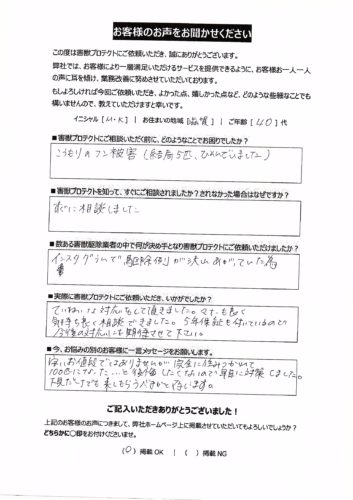 お客様のお声をお聞かせください
この度は害獣プロテクトにご依頼いただき、誠にありがとうございます。
弊社では、お客様により一層満足いただけるサービスを提供できるように、お客様お一人一人
の声に耳を傾け、業務改善に努めさせていただいております。
もしよろしければ今回ご依頼いただき、よかった点、嬉しかった点など、どのような些細なことでも
構いませんので、教えていただけますと幸いです。
イニシャル [M・K] | お住まいの地域 [滋賀] | ご年齢 [40] 代
■害獣プロテクトにご相談いただく前に、どのようなことでお困りでしたか?
こうもりのフン被害 (結局5匹、ひそんでいました)
■害獣プロテクトを知って、すぐにご相談されましたか?されなかった場合はなぜですか?
すぐに相談しました
■数ある害獣駆除業者の中で何が決め手となり害獣プロテクトにご依頼いただけましたか?
インスタグラムで、駆除例が沢山あがっていた為
■実際に害獣プロテクトにご依頼いただき、いかがでしたか?
ていねいな対応をして頂きました。マナーも良く
気持ち良く相談できました。5年保証も付いているので
今後の対応にも期待させて下さい。
■今、お悩みの別のお客様に一言メッセージをお願いします。
安いお値段ではありませんが、完全に住みつかれて
100匹になった…と後悔したくないので早目に対策しました。
下見だけでも来てもらうべきかと存じます。
ご記入いただきありがとうございました!
上記のお客様のお声につきまして、弊社ホームページ上に掲載させていただいてもよろしいでしょうか?
どちらかに○印をお付けくださいませ。
(○) 掲載 OK | ( ) 掲載 NG